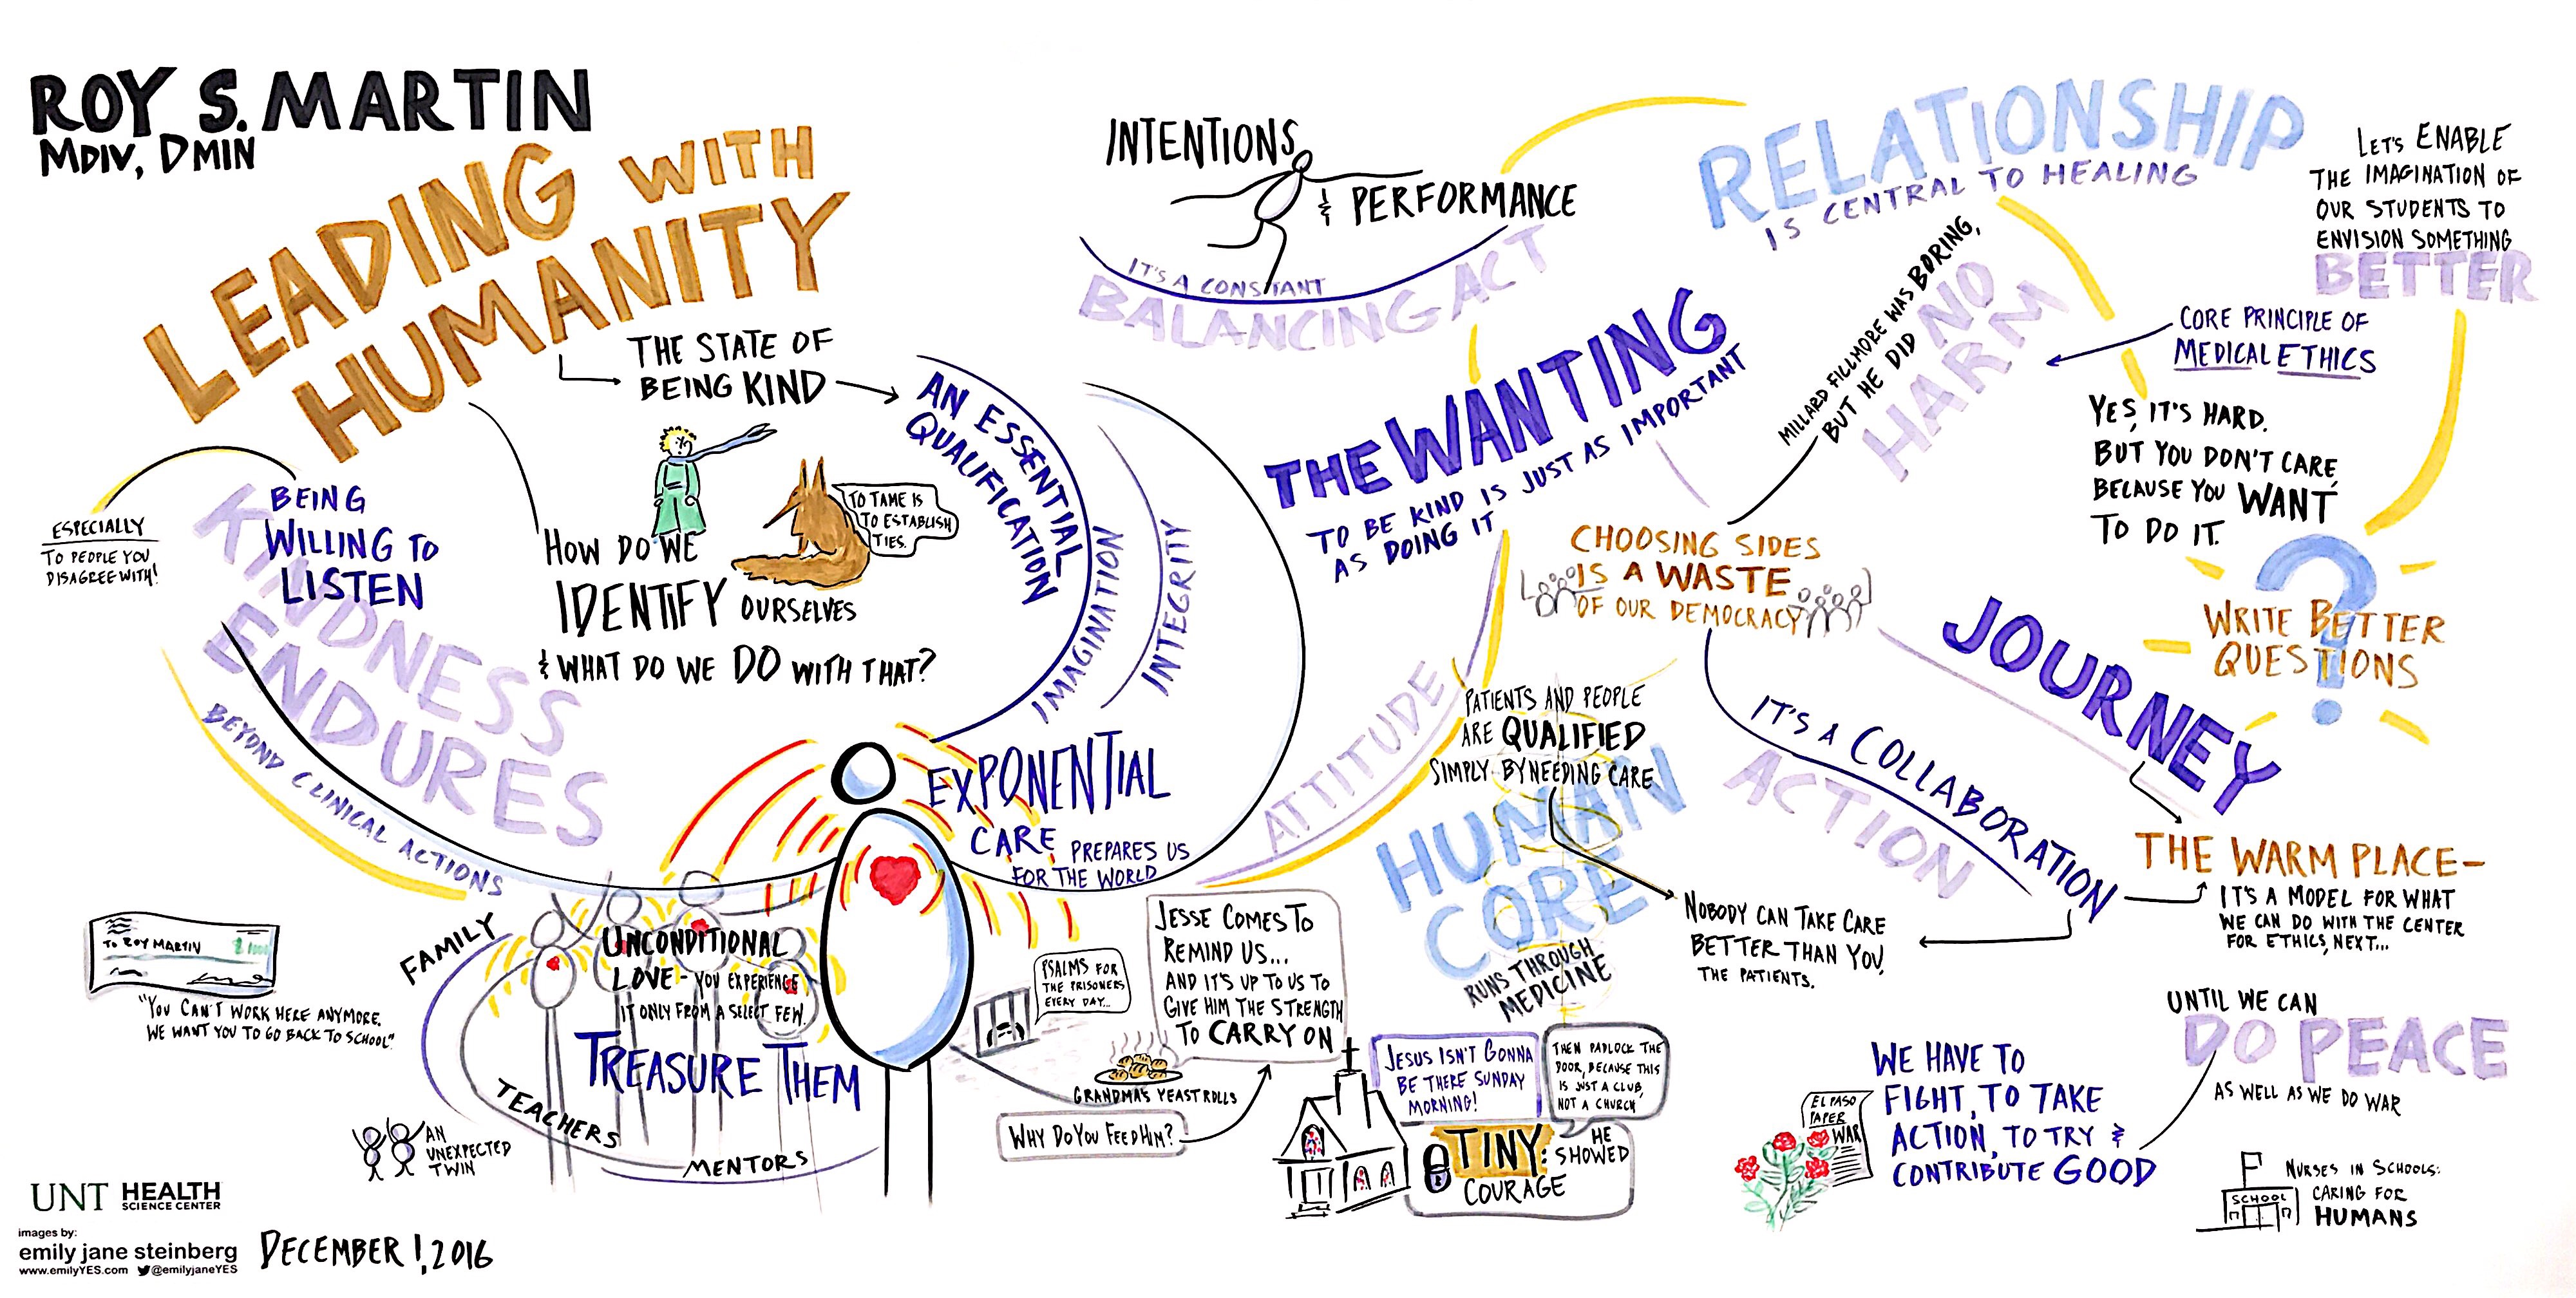 ROY S. MARTIN
MDIV, DMIN
LEADING WITH
HUMANITY
THE STATE OF
BEING KIND
AN ESSENTIAL
QUALIFICATION
IMAGINATION
INTEGRITY
TO TAME IS
TO ESTABLISH
TIES.
HOW DO WE
IDENTIFY OURSELVES
& WHAT DO WE DO WITH THAT?
BEING
WILLING TO
LISTEN
ESPECIALLY
TO PEOPLE YOU
DISAGREE WITH!
KINDNESS
ENDURES
BEYOND CLINICAL ACTIONS
EXPONENTIAL
CARE PREPARES US
FOR THE WORLD
TO ROY MARTIN
"YOU CAN'T WORK HERE ANYMORE.
WE WANT YOU TO GO BACK TO SCHOOL"
FAMILY
UNCONDITIONAL
LOVE - YOU EXPERIENCE
IT ONLY FROM A SELECT FEW.
TREASURE THEM
TEACHERS
MENTORS
AN
UNEXPECTED
TWIN
PSALMS FOR
THE PRISONERS
EVERY DAY...
GRANDMA'S YEAST ROLLS
WHY DO YOU FEED HIM?
JESSE COMES TO
REMIND US...
AND IT'S UP TO US TO
GIVE HIM THE STRENGTH
TO CARRY ON
INTENTIONS
& PERFORMANCE
IT'S A CONSTANT
BALANCING ACT
THE WANTING
TO BE KIND IS JUST AS IMPORTANT
AS DOING IT
ATTITUDE
RELATIONSHIP
IS CENTRAL TO HEALING
MILLARD FILLMORE WAS BORING,
BUT HE DID NO
HARM
CORE PRINCIPLE OF
MEDICAL ETHICS
LET'S ENABLE
THE IMAGINATION OF
OUR STUDENTS TO
ENVISION SOMETHING
BETTER
YES, IT'S HARD.
BUT YOU DON'T CARE,
BECAUSE YOU WANT
TO DO IT.
?
WRITE BETTER
QUESTIONS
CHOOSING SIDES
IS A WASTE
OF OUR DEMOCRACY
JOURNEY
IT'S A COLLABORATION
ACTION
THE WARM PLACE-
IT'S A MODEL FOR WHAT
WE CAN DO WITH THE CENTER
FOR ETHICS, NEXT...
PATIENTS AND PEOPLE
ARE QUALIFIED
SIMPLY BY NEEDING CARE
HUMAN
CORE
RUNS THROUGH
MEDICINE
NOBODY CAN TAKE CARE
BETTER THAN YOU,
THE PATIENTS.
JESUS ISN'T GONNA
BE THERE SUNDAY
MORNING!
THEN PADLOCK THE
DOOR, BECAUSE THIS
IS JUST A CLUB,
NOT A CHURCH
TINY: HE
SHOWED
COURAGE
EL PASO
PAPER
WAR
WE HAVE TO
FIGHT, TO TAKE
ACTION, TO TRY &
CONTRIBUTE GOOD
UNTIL WE CAN
DO PEACE
AS WELL AS WE DO WAR
SCHOOL
NURSES IN SCHOOLS:
CARING FOR
HUMANS
UNT HEALTH
SCIENCE CENTER
images by:
emily jane steinberg
www.emilyYES.com @emilyjaneYES
DECEMBER 1, 2016